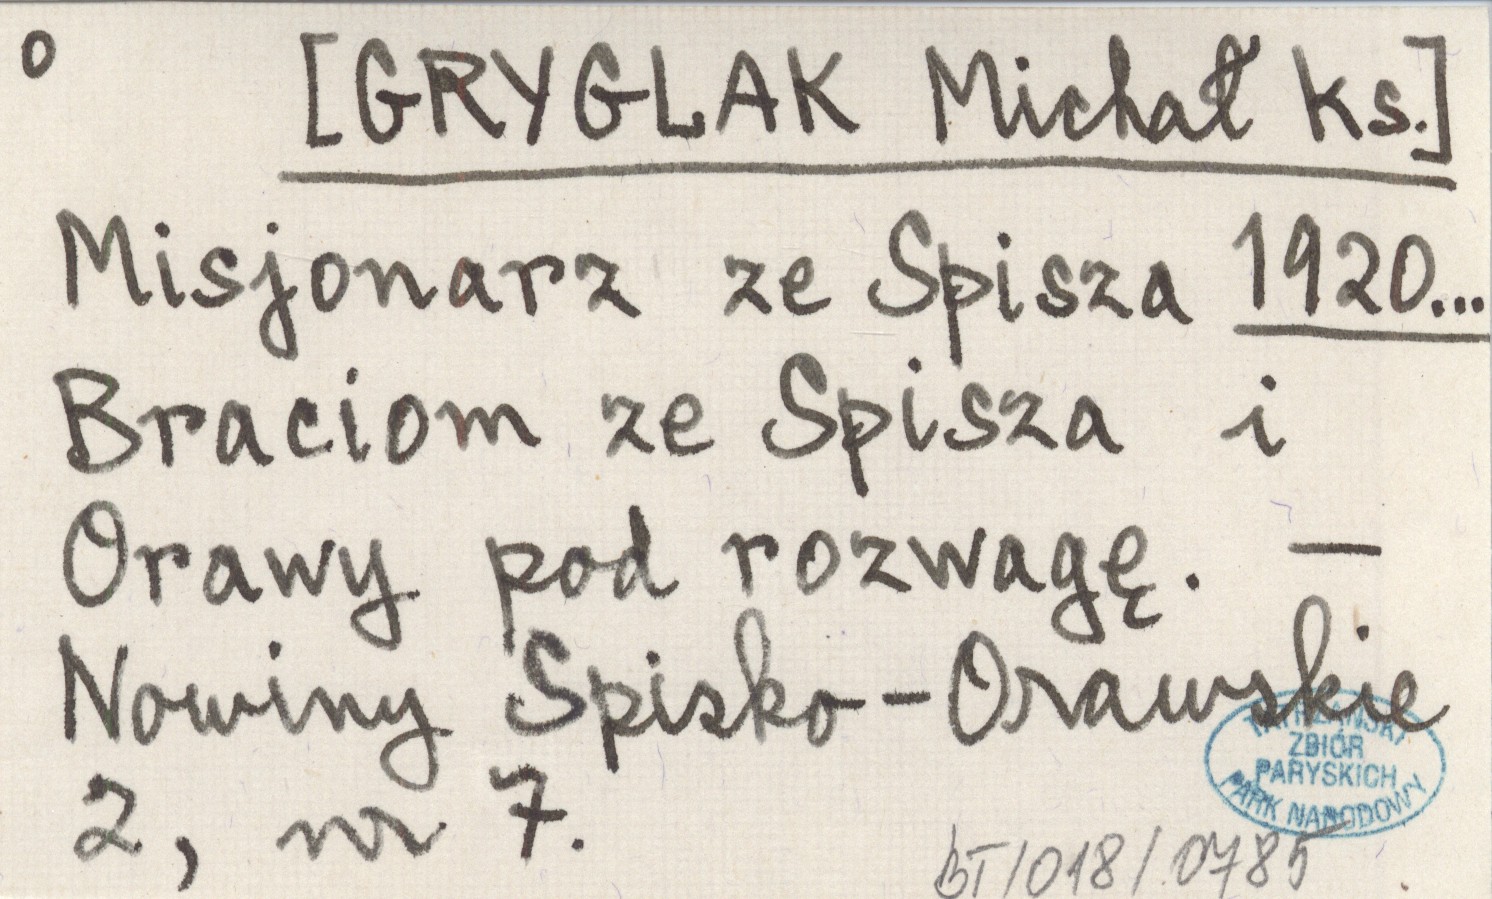 o
[GRYGLAK Michał ks.]
Misjonarz ze Spisza 1920...
Braciom ze Spisza i
Orawy pod rozwagę. —
Nowiny Spisko-Orawskie
2, nr 7.
TATRZAŃSKI
ZBIÓR
PARYSKICH
PARK NARODOWY
BT/018/0785